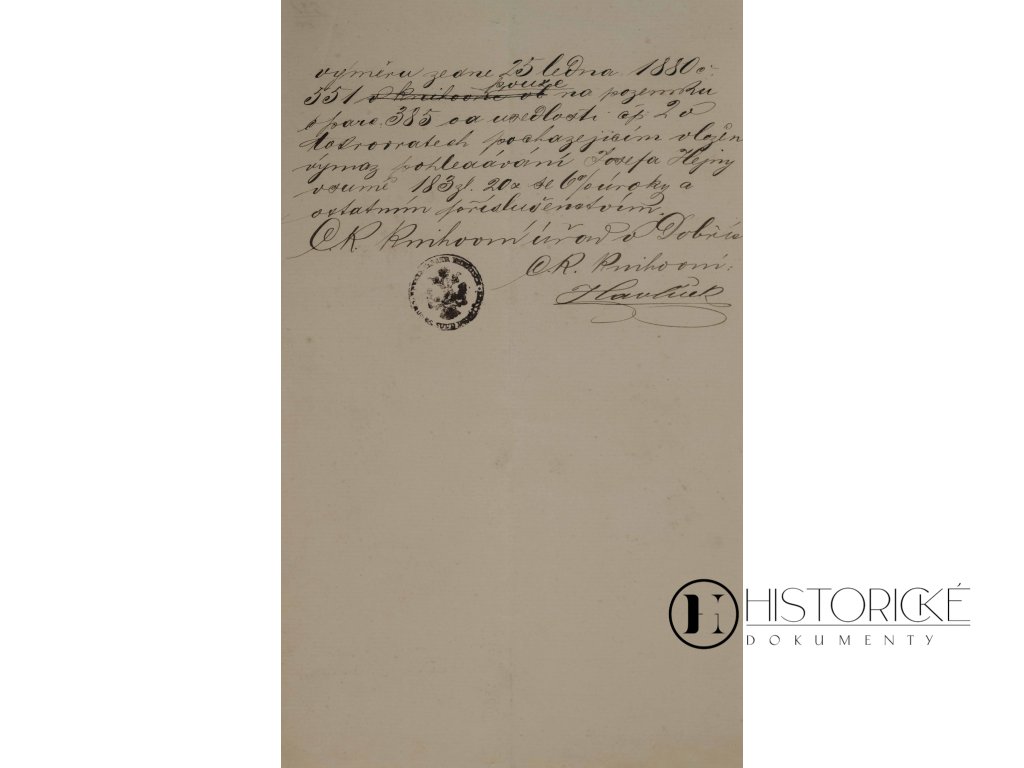 výměru ze dne 25 ledna 1880 č.
pouze
551 v knihovní vl na pozemku
č parc. 385 od usedlosti čp 2 v
pocházejícím vložen
výmaz pohledávání Josefa Hejny
v sumě 183 zl. 20x se 6% úroky a
ostatním příslušenstvím.
C.K. knihovní úřad v Dobříš
C.K. knihovní:
Havlíček
HISTORICKÉ
DOKUMENTY